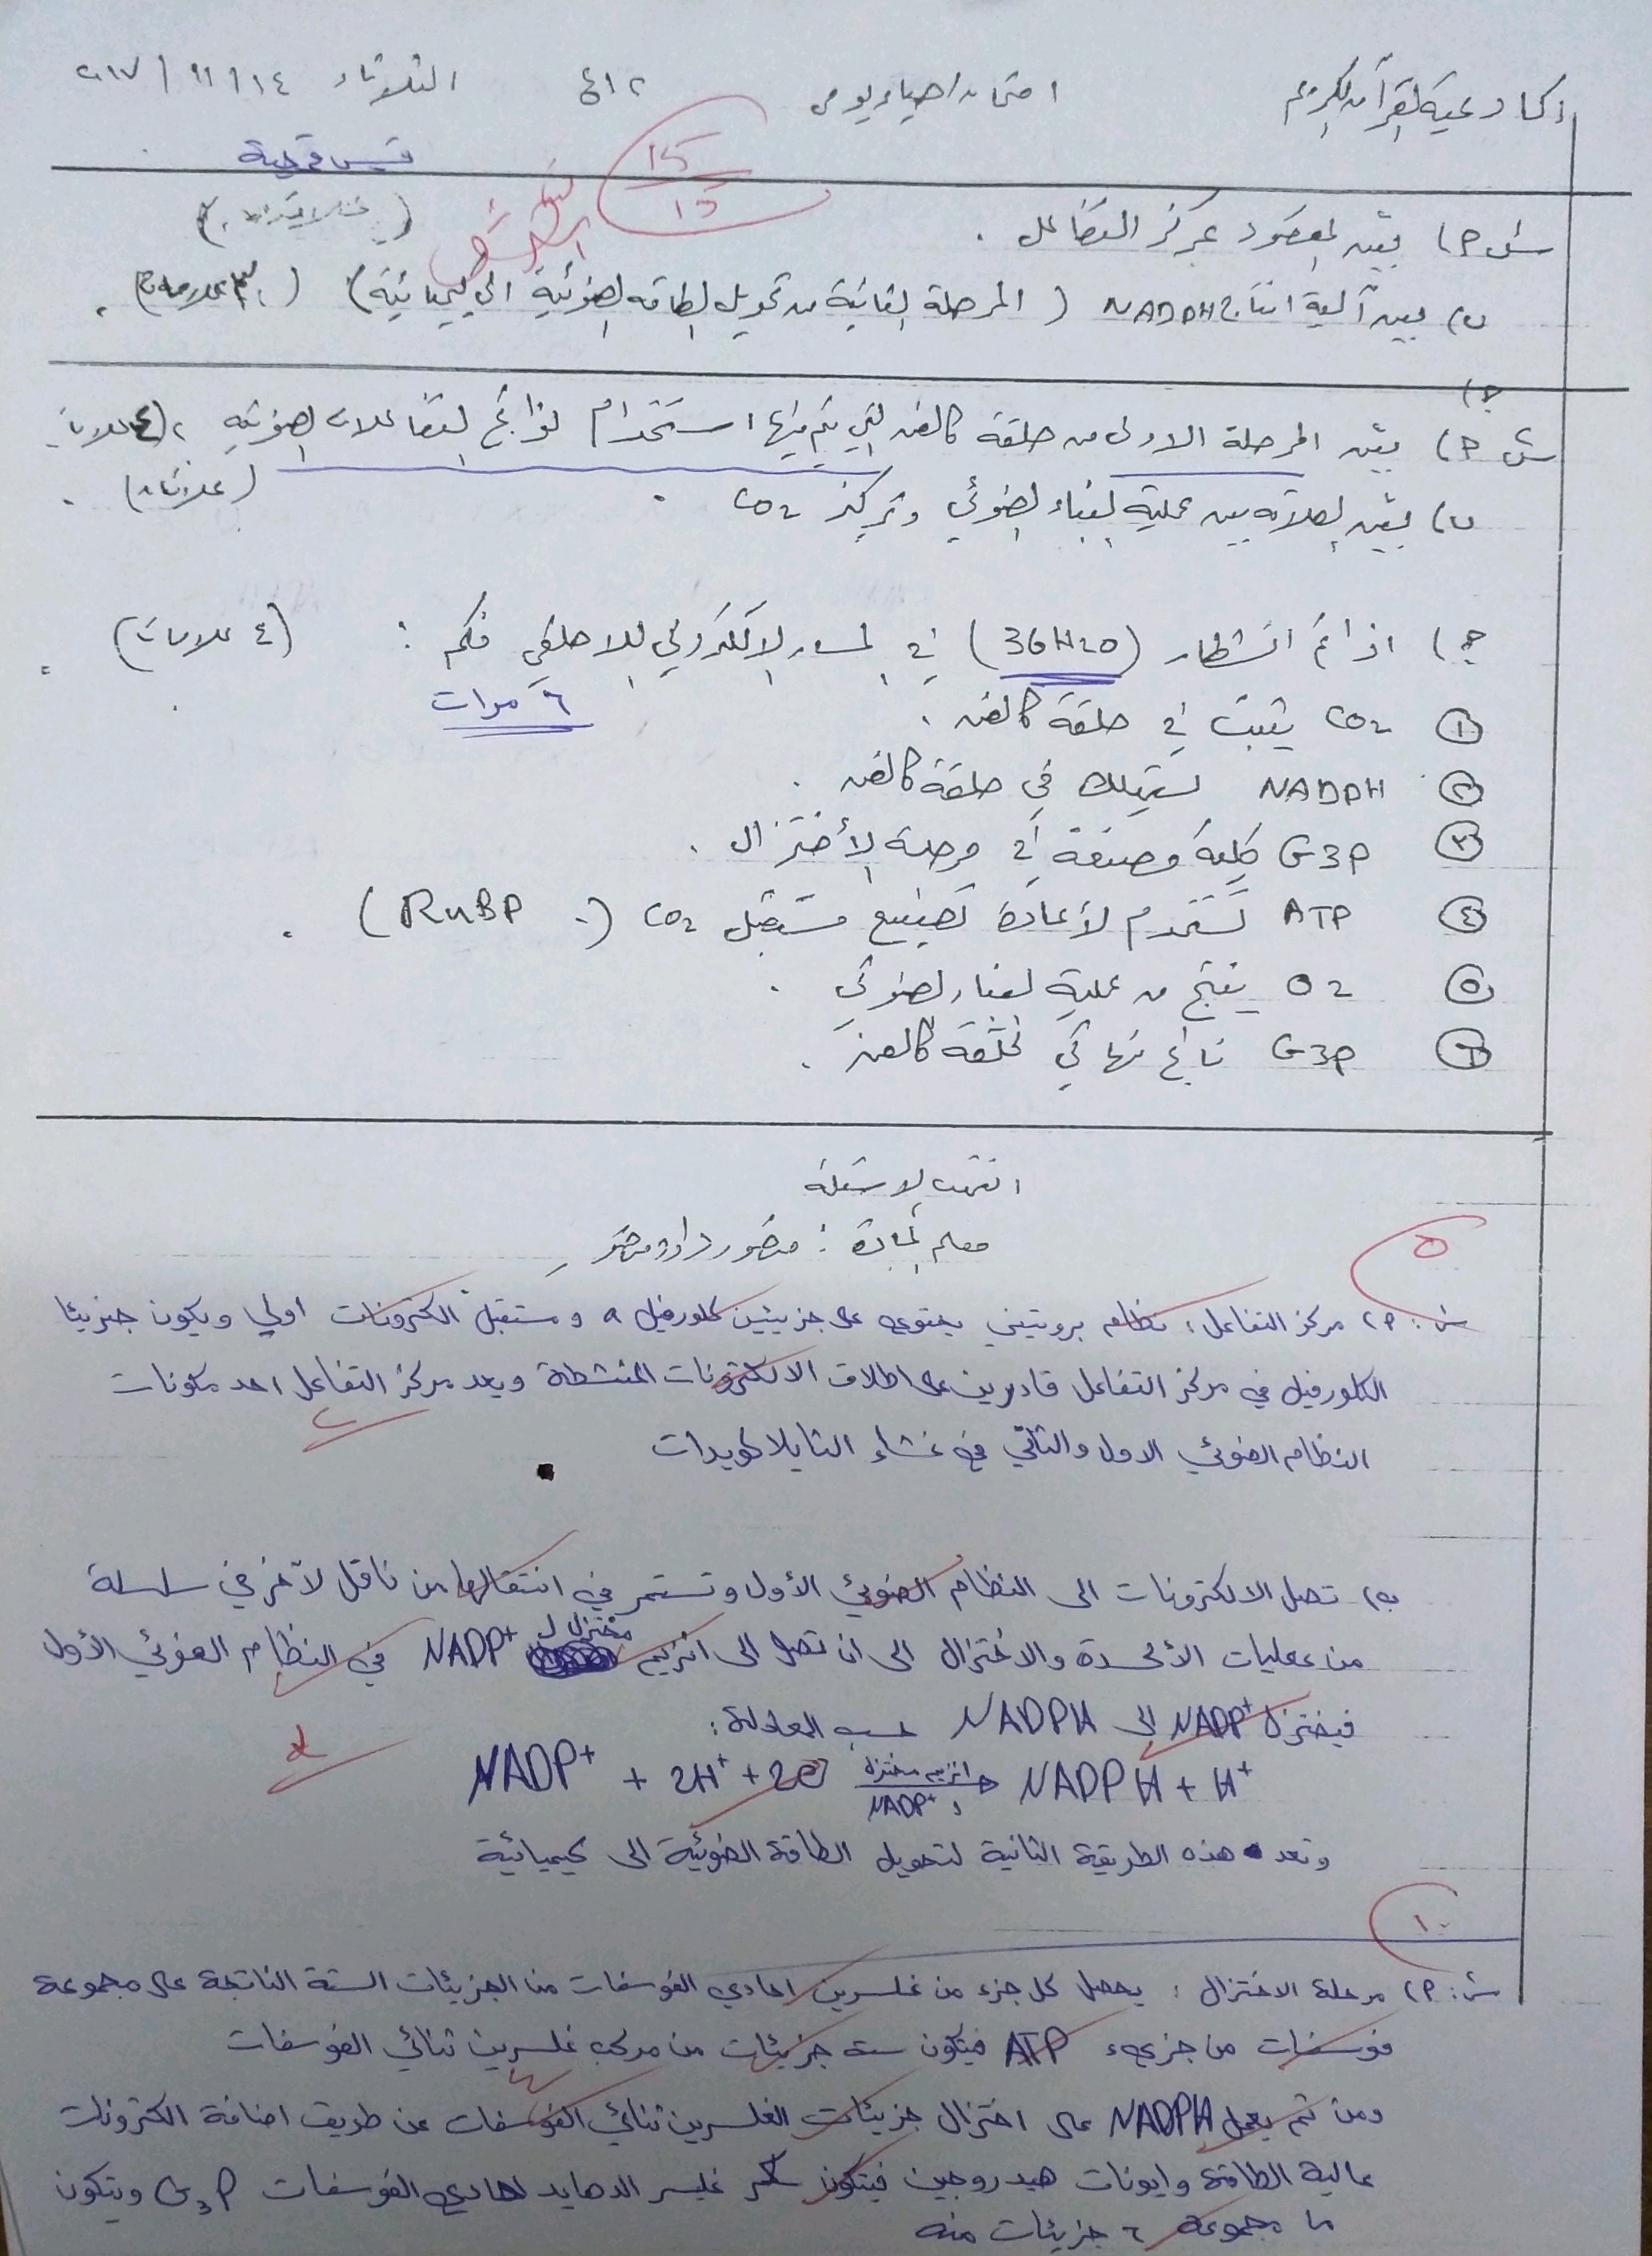 اكاديمية القرآن الكريم
امتحان احياء يومي
الثلاثاء ١٤ / ١١ / ٢٠١٧
15
15
س١ ٢) بيّن المقصود بمركز التفاعل .
(علامتان)
ب) بين آلية انتاج NADPH (المرحلة الثانية من تحويل الطاقة الضوئية الى كيميائية) (٣ علامات) .
س٢ ٢) بيّن المرحلة الاولى من حلقة كالفن التي يتم فيها استخدام نواتج التفاعلات الضوئية . (٤ علامات)
ب) بيّن العلاقة بين عملية البناء الضوئي وتركيز CO2 . (علامتان) .
جـ) اذا تم انشطار (36H2O) في المسار الالكتروني اللاحلقي فكم : (٤ علامات)
٦ مرات
① CO2 يثبت في حلقة كالفن .
② NADPH تستهلك في حلقة كالفن .
③ G3P كلية مصنعة في مرحلة الأختزال .
④ ATP تستخدم لأعادة تصنيع مستقبل CO2 (RuBP) .
⑤ O2 ينتج من عملية البناء الضوئي .
⑥ G3P ناتج نهائي لحلقة كالفن .
انتهت الاسئلة
معلم المادة : منصور داود
٥
س١: ٢) مركز التفاعل: نظام بروتيني يحتوي على جزيئين كلورفيل a ومستقبل الكترونات اولي ويكون جزيئا
الكلورفيل في مركز التفاعل قادرين على اطلاق الالكترونات المنشطة ويعد مركز التفاعل احد مكونات
٢
النظام الضوئي الاول والثاني في غشاء الثايلاكويدات
ب) تصل الالكترونات الى النظام الضوئي الأول وتستمر في انتقالها من ناقل لآخر في سلسلة
من عمليات الأكسدة والاختزال الى ان تصل الى انزيم مختزل ل NADP+ في النظام الضوئي الأول
فيختزل NADP+ الى NADPH حسب المعادلة:
NADP+ + 2H+ + 2e انزيم مختزل NADP+ → NADPH + H+
وتعد هذه الطريقة الثانية لتحويل الطاقة الضوئية الى كيميائية
١٠
س٢: ٢) مرحلة الاختزال : يحصل كل جزء من غلسرين احادي الفوسفات من الجزيئات الستة الناتجة على مجموعة
فوسفات من جزيء ATP فيتكون ستة جزيئات من مركب غلسرين ثنائي الفوسفات
٤
ومن ثم يعمل NADPH على اختزال جزيئات الغلسرين ثنائي الفوسفات عن طريق اضافة الكترونات
عالية الطاقة وايونات هيدروجين فيتكون سكر غليسر الدهايد احادي الفوسفات G3P ويتكون
ما مجموعه ٦ جزيئات منه